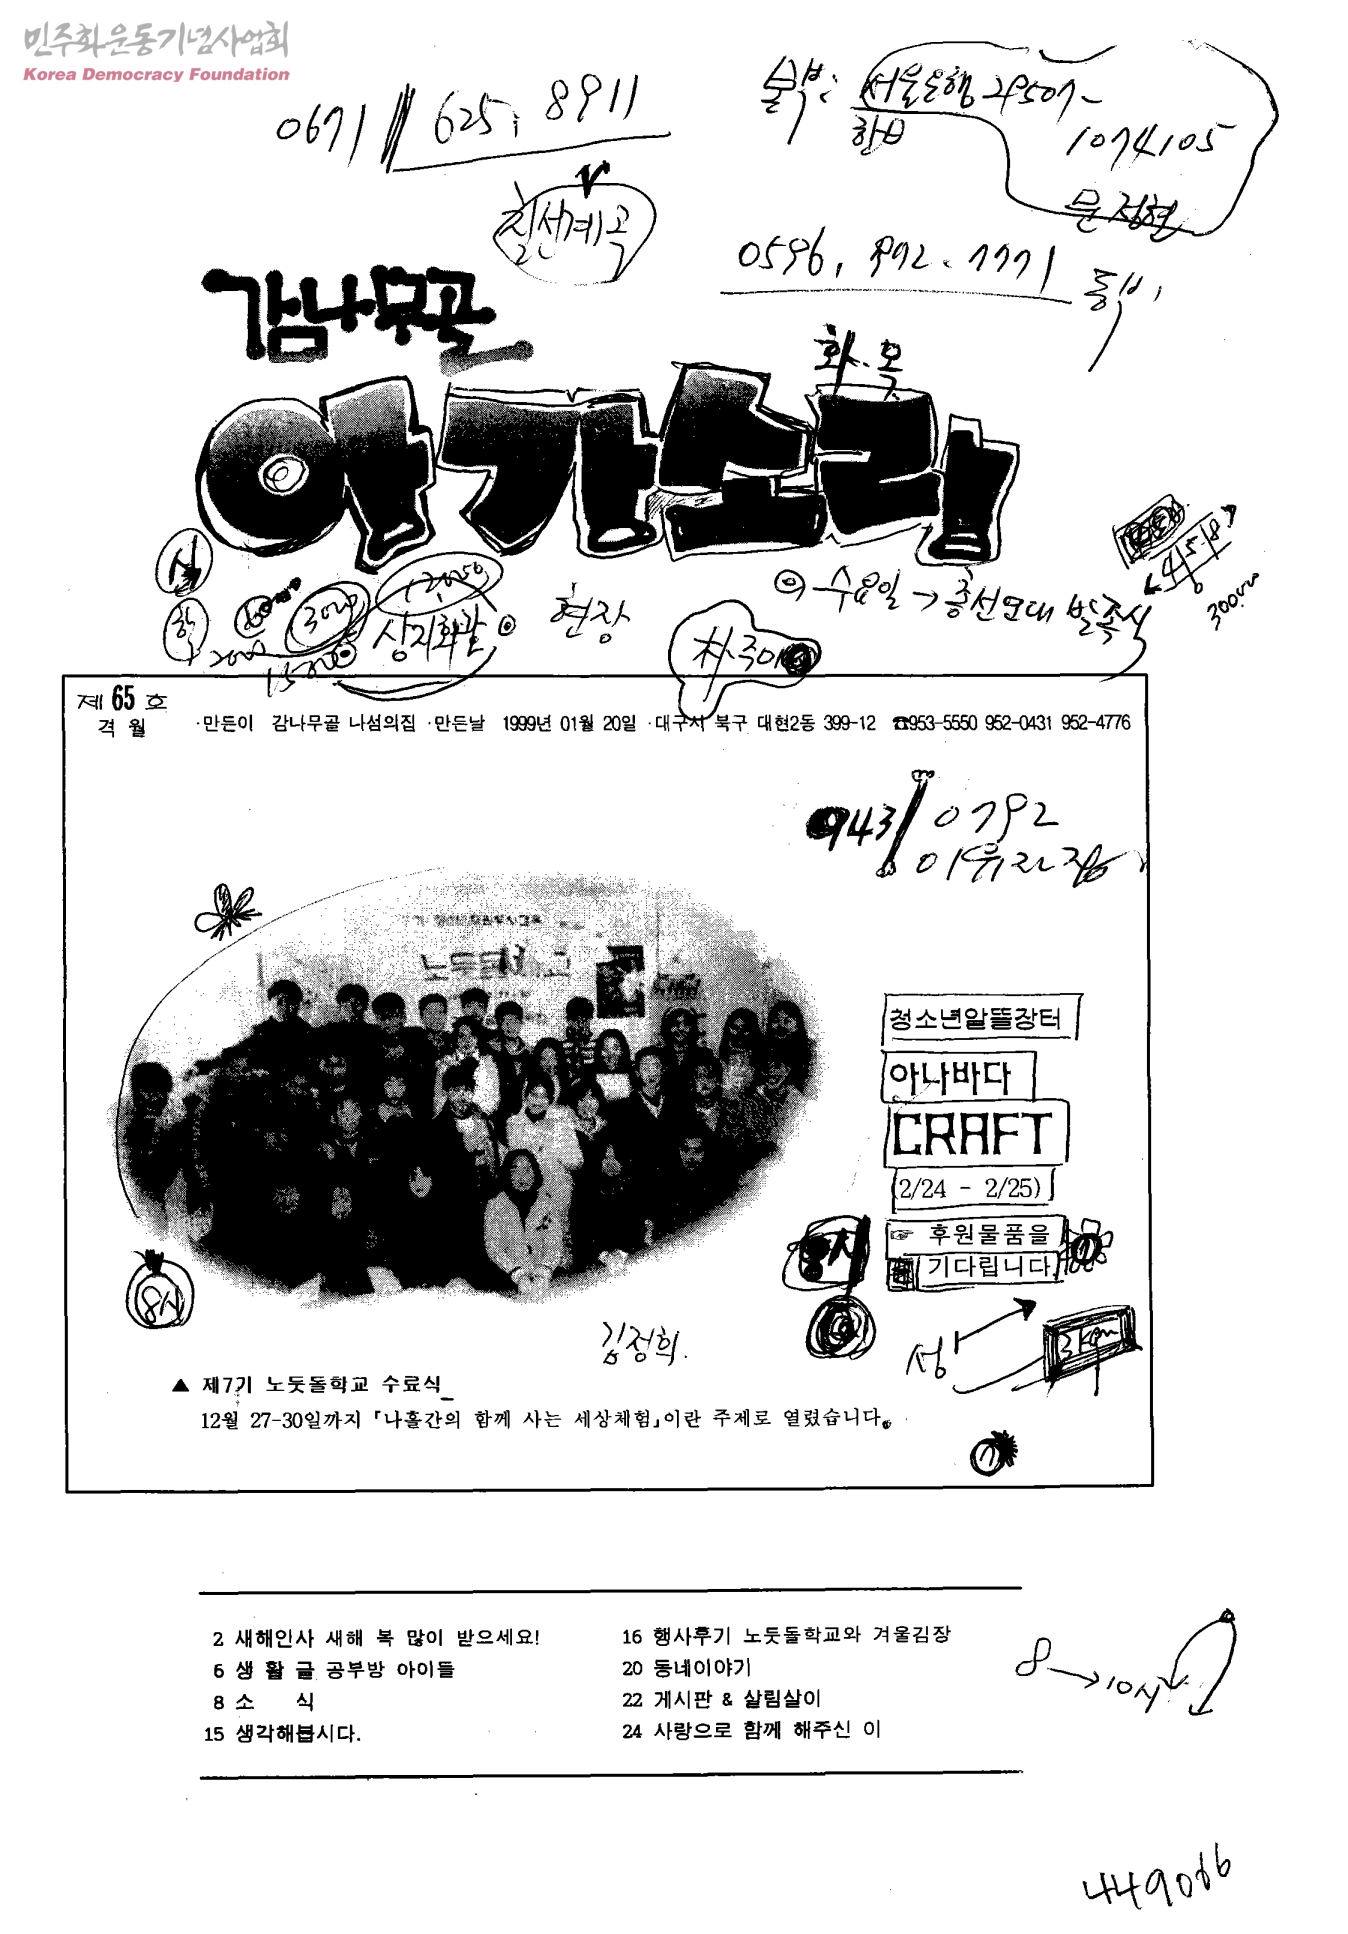 민주화운동기념사업회
Korea Democracy Foundation
0671 625, 8911
1074105
문정현
칠선계곡
감나무골
야강소리
화.목
현장
수요일 →
30000
제 65 호
격 월
·만든이 감나무골 나섬의집 ·만든날 1999년 01월 20일 ·대구시 북구 대현2동 399-12 ☎953-5550 952-0431 952-4776
943/0792
노둣돌학교
청소년알뜰장터
아나바다
CRAFT
(2/24 - 2/25)
☞ 후원물품을
기다립니다
8시
김정희.
성
▲ 제7기 노둣돌학교 수료식
12월 27-30일까지 「나흘간의 함께 사는 세상체험」이란 주제로 열렸습니다.
7
2 새해인사 새해 복 많이 받으세요!
6 생 활 글 공부방 아이들
8 소 식
15 생각해봅시다.
16 행사후기 노둣돌학교와 겨울김장
20 동네이야기
22 게시판 & 살림살이
24 사랑으로 함께 해주신 이
8 → 10시
449066